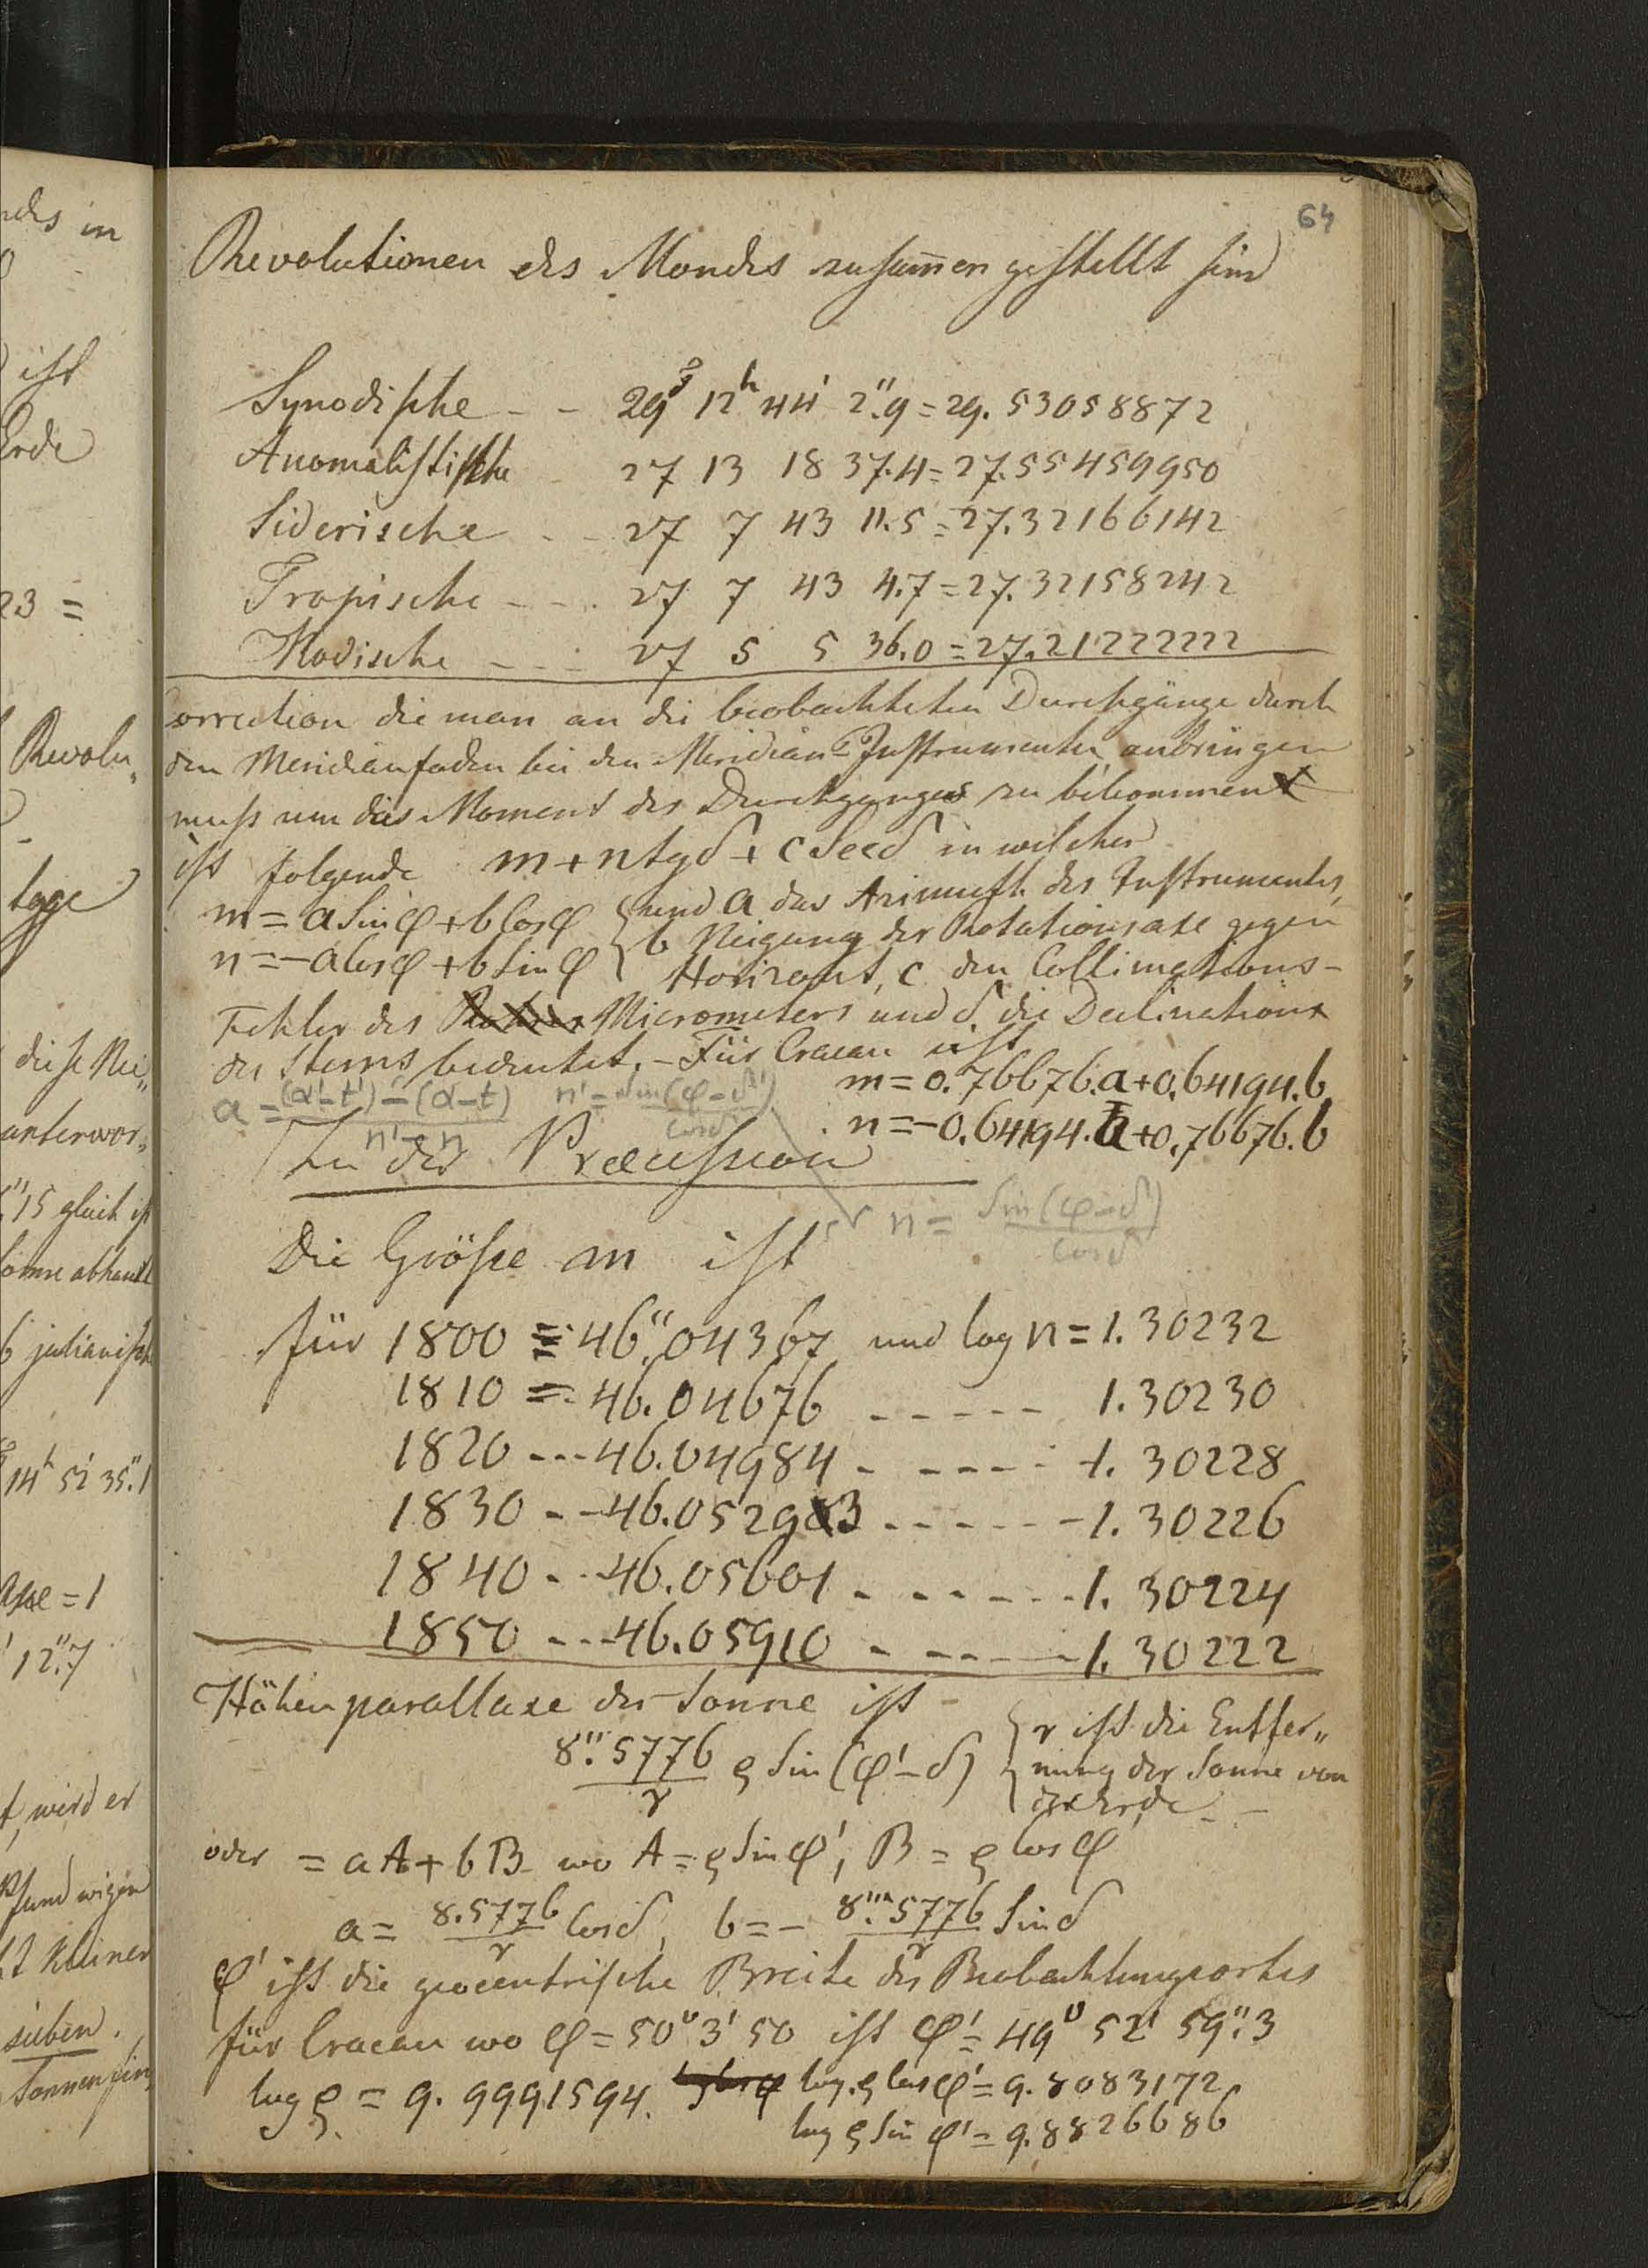 64
Revolutionen des Mondes zusam̄en gestellt sind
Synodische - - 29d 12h 44' 2".9 = 29.53058872
Anomalistische - 27 13 18 37.4 = 27.55459950
Siderische - - 27 7 43 11.5 = 27.32166142
Tropische - - - 27 7 43 4.7 = 27.32158242
Knodische - - - 27 5 5 36.0 = 27.21222222
Correction die man an die beobachteten Durchgänge durch
den Meridianfaden bei den Meridian-Instrumenten anbringen
muß um das Moment des Durchganges zu bekommen
ist folgende m + n tg δ + c Sec δ in welcher
m = a Sin φ + b Cos φ { und a das Azimuth des Instrumentes,
n = - a Cos φ + b Sin φ { b Neigung der Rotationsaxe gegen
Horizont, c den Collimations-
Fehler des Micrometers und δ die Declination
des Sterns bedeutet. - Für Cracau ist
m = 0.76676.a + 0.64194.b
a = (α'-t') - (α-t) / n' - n n' = Sin(φ-δ') / Cos δ'
n = -0.64194.a + 0.76676.b
Zu der Præcession
n = Sin(φ-δ) / Cos δ
Die Größe m ist
für 1800 = 46".04367 und log n = 1.30232
1810 = 46.04676 - - - - - 1.30230
1820 - - - 46.04984 - - - - - 1.30228
1830 - - 46.05293 - - - - - - 1.30226
1840 - - - 46.05601 - - - - - - 1.30224
1850 - - - 46.05910 - - - - - 1.30222
Höhenparallaxe der Sonne ist -
8".5776 / r ϱ Sin (φ' - δ) { r ist die Entfer„
nung der Sonne von
der Erde - -
oder = aA + bB wo A = ϱ Sin φ', B = ϱ Cos φ'
a = 8.5776 / r Cos δ, b = - 8".5776 / r Sin δ
φ' ist die geocentrische Breite des Beobachtungsortes
für Cracau wo φ = 50° 3' 50 ist φ' = 49° 52' 59".3
log ϱ = 9.9991594. log. ϱ Cos φ' = 9.8083172
log ϱ Sin φ' = 9.8826686
ndes in
ist
Erde
23 =
Revolu„
tage
diese Nei„
unterwor„
"15 gleich ist
Sonne abhandl
6 julianische
14h 52' 35".1
Axe = 1
' 12".7
t, wird er
Pfund wigen
kleiner
sieben.
Sonnenfin„